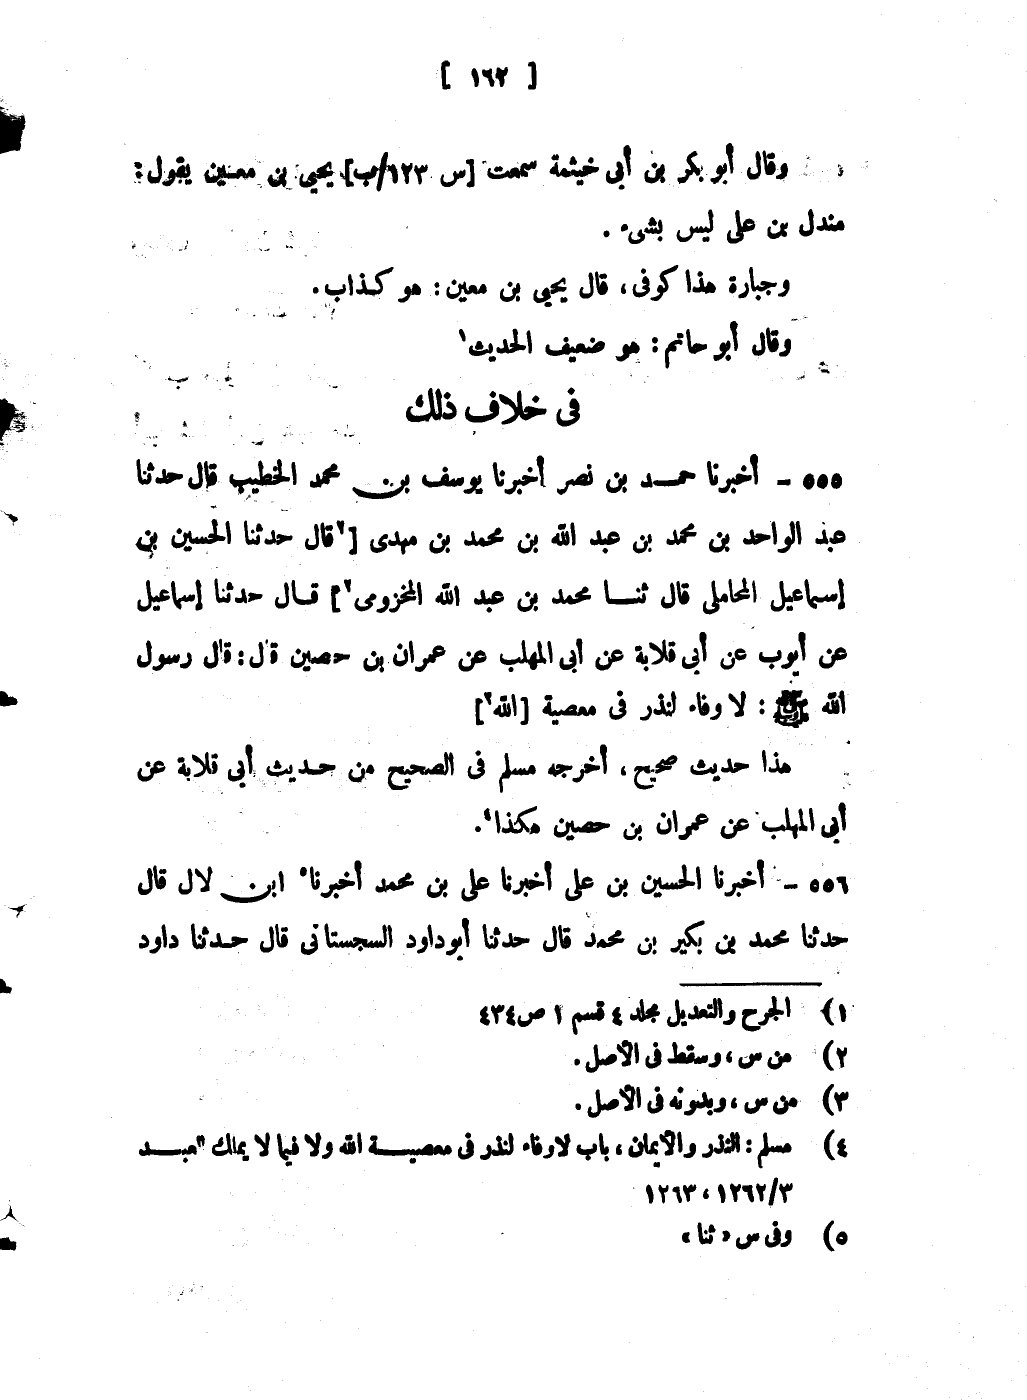 [ ١٦٢ ]
وقال أبو بكر بن أبى خيثمة سمعت [س ١٢٣/ب] يحيى بن معين يقول:
مندل بن على ليس بشىء .
وجبارة هذا كوفى، قال يحيى بن معين: هو كذاب.
وقال أبو حاتم: هو ضعيف الحديث١
فى خلاف ذلك
٥٥٥ - أخبرنا حمد بن نصر أخبرنا يوسف بن محمد الخطيب قال حدثنا
عبد الواحد بن محمد بن عبد الله بن محمد بن مهدى [٢قال حدثنا الحسين بن
إسماعيل المحاملى قال ثنا محمد بن عبد الله المخزومى٢] قال حدثنا إسماعيل
عن أيوب عن أبى قلابة عن أبى المهلب عن عمران بن حصين قال: قال رسول
الله ﷺ : لا وفاء لنذر فى معصية [الله٣]
هذا حديث صحيح، أخرجه مسلم فى الصحيح من حديث أبى قلابة عن
أبى المهلب عن عمران بن حصين هكذا٤.
٥٥٦ - أخبرنا الحسين بن على أخبرنا على بن محمد أخبرنا٥ ابن لال قال
حدثنا محمد بن بكير بن محمد قال حدثنا أبو داود السجستانى قال حدثنا داود
١) الجرح والتعديل مجلد ٤ قسم ١ ص٤٣٤
٢) من س ، وسقط فى الأصل .
٣) من س ، وبدونه فى الأصل .
٤) مسلم : النذر والأيمان ، باب لاوفاء لنذر فى معصية الله ولا فيما لا يملك العبد
٣/١٢٦٢ ، ١٢٦٣
٥) وفى س « ثنا »